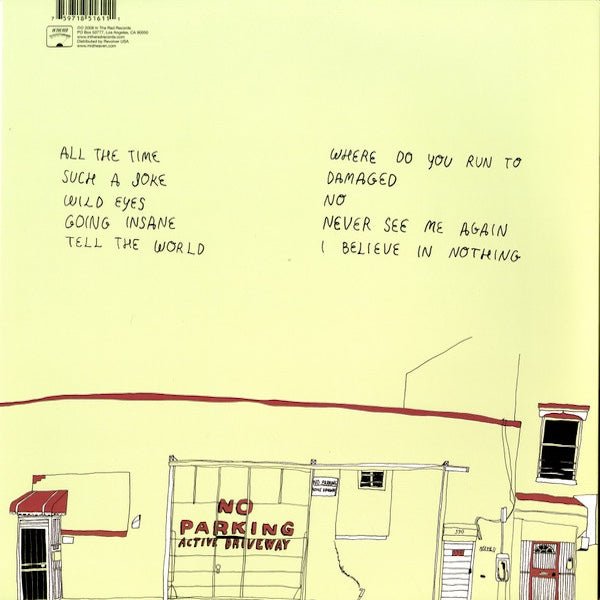 7 59718 51611 1
IN THE RED
©℗ 2008 In The Red Records
PO Box 50777, Los Angeles, CA 90050
www.intheredrecords.com
Distributed by Revolver USA
www.midheaven.com
ALL THE TIME
SUCH A JOKE
WILD EYES
GOING INSANE
TELL THE WORLD
WHERE DO YOU RUN TO
DAMAGED
NO
NEVER SEE ME AGAIN
I BELIEVE IN NOTHING
NO PARKING
ACTIVE DRIVEWAY
NO
PARKING
ACTIVE DRIVEWAY